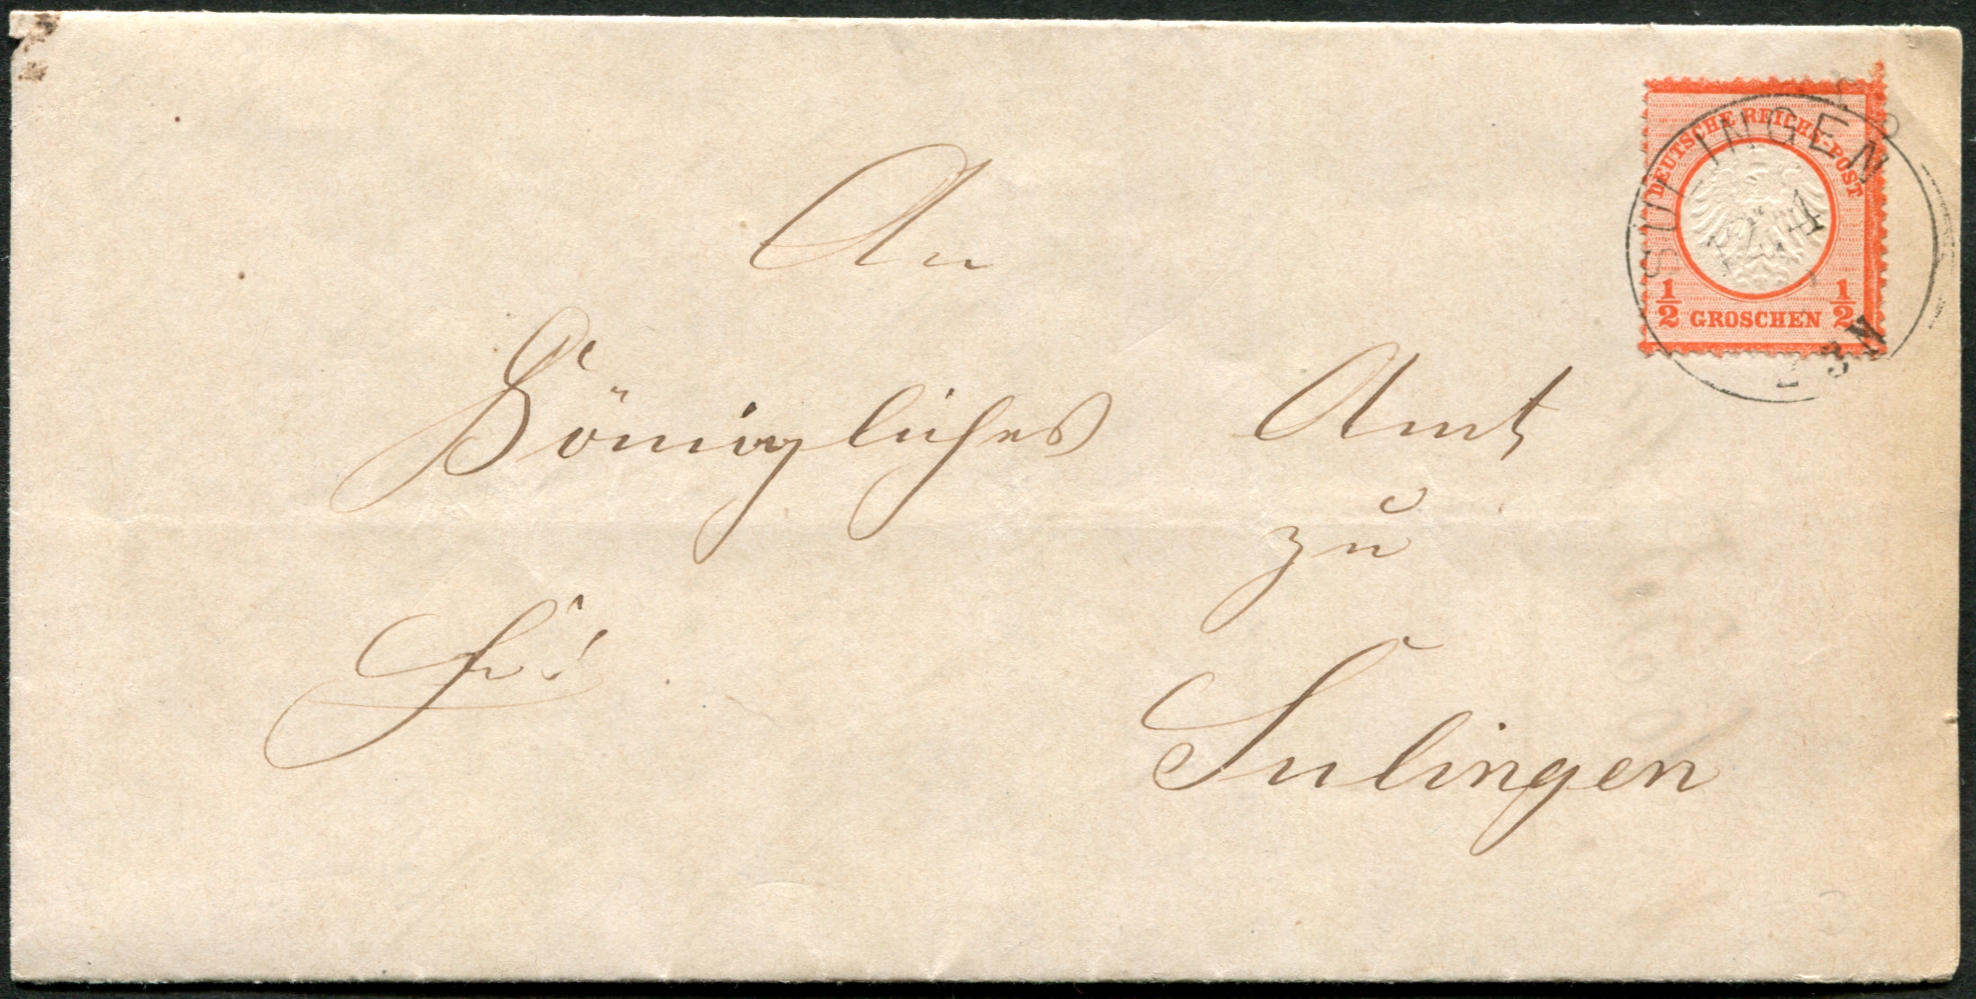 DEUTSCHE REICHS-POST
1/2 GROSCHEN 1/2
SULINGEN
2-3N
An
Königliches Amt
zu
Sulingen